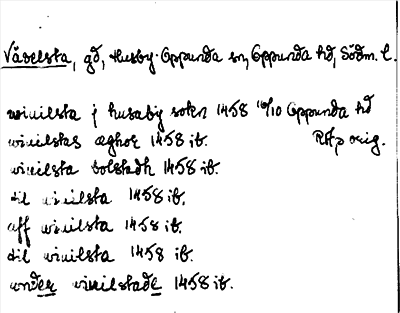 Vävelsta, gd, Husby-Oppunda sn, Oppunda hd, Södm. l.
winilsta j husaby sokn 1458 16/10 Oppunda hd
winilstas æghor 1458 ib. RAp orig.
winilsta bolstadh 1458 ib.
til winilsta 1458 ib.
aff winilsta 1458 ib.
til winilsta 1458 ib.
under winilstade 1458 ib.